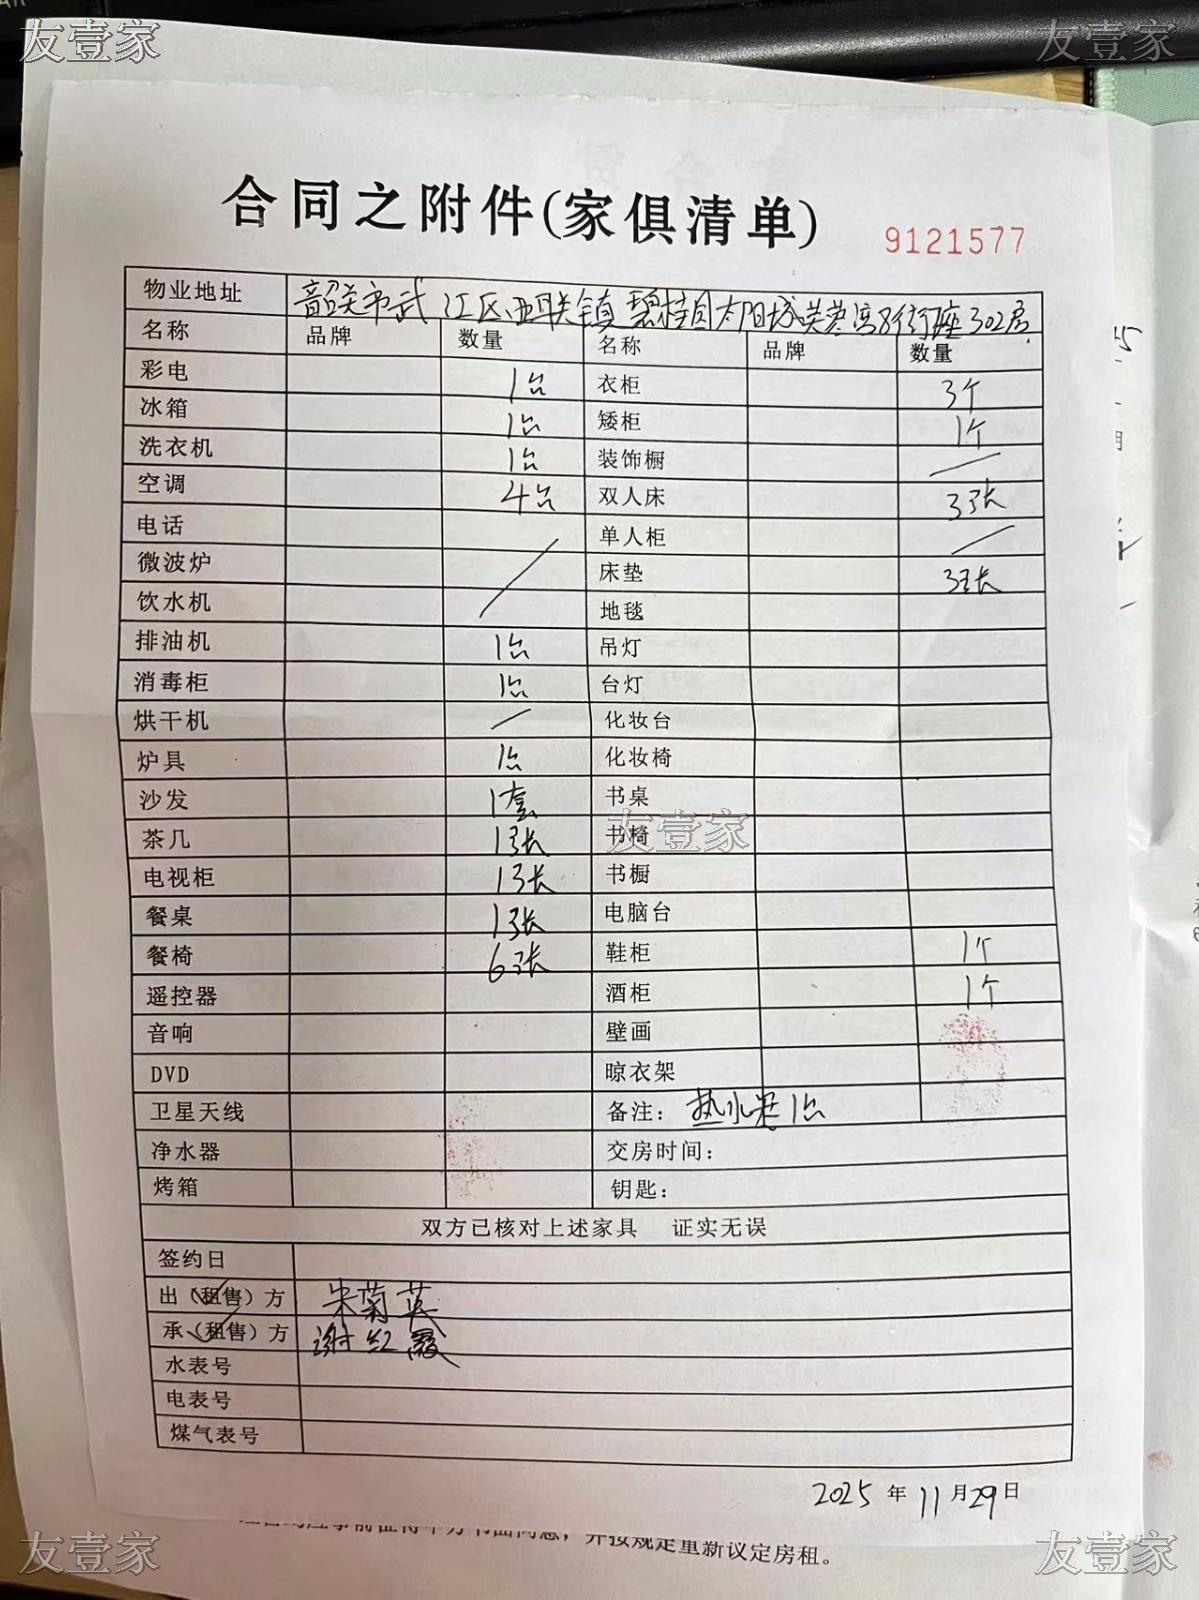 友壹家 友壹家
合同之附件(家俱清单)
9121577
物业地址 韶关市武江区西联镇碧桂园太阳城芙蓉湾8街座302房
名称 品牌 数量 名称 品牌 数量
彩电 1台 衣柜 3个
冰箱 1台 矮柜 1个
洗衣机 1台 装饰橱 /
空调 4台 双人床 3张
电话 单人柜 /
微波炉 / 床垫 3张
饮水机 地毯
排油机 1台 吊灯
消毒柜 1台 台灯
烘干机 / 化妆台
炉具 1台 化妆椅
沙发 1套 书桌
茶几 1张 书椅
友壹家
电视柜 1张 书橱
餐桌 1张 电脑台
餐椅 6张 鞋柜 1个
遥控器 酒柜 1个
音响 壁画
DVD 晾衣架
卫星天线 备注: 热水器1台
净水器 交房时间:
烤箱 钥匙:
双方已核对上述家具 证实无误
签约日
出(租售)方 朱菊英
承(租售)方 谢红霞
水表号
电表号
煤气表号
2025年11月29日
并按规定重新议定房租。
友壹家 友壹家